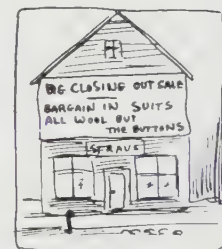 BG CLOSING OUT SALE
BARGAIN IN SUITS
ALL WOOL BUT
THE BUTTONS
STRAUS